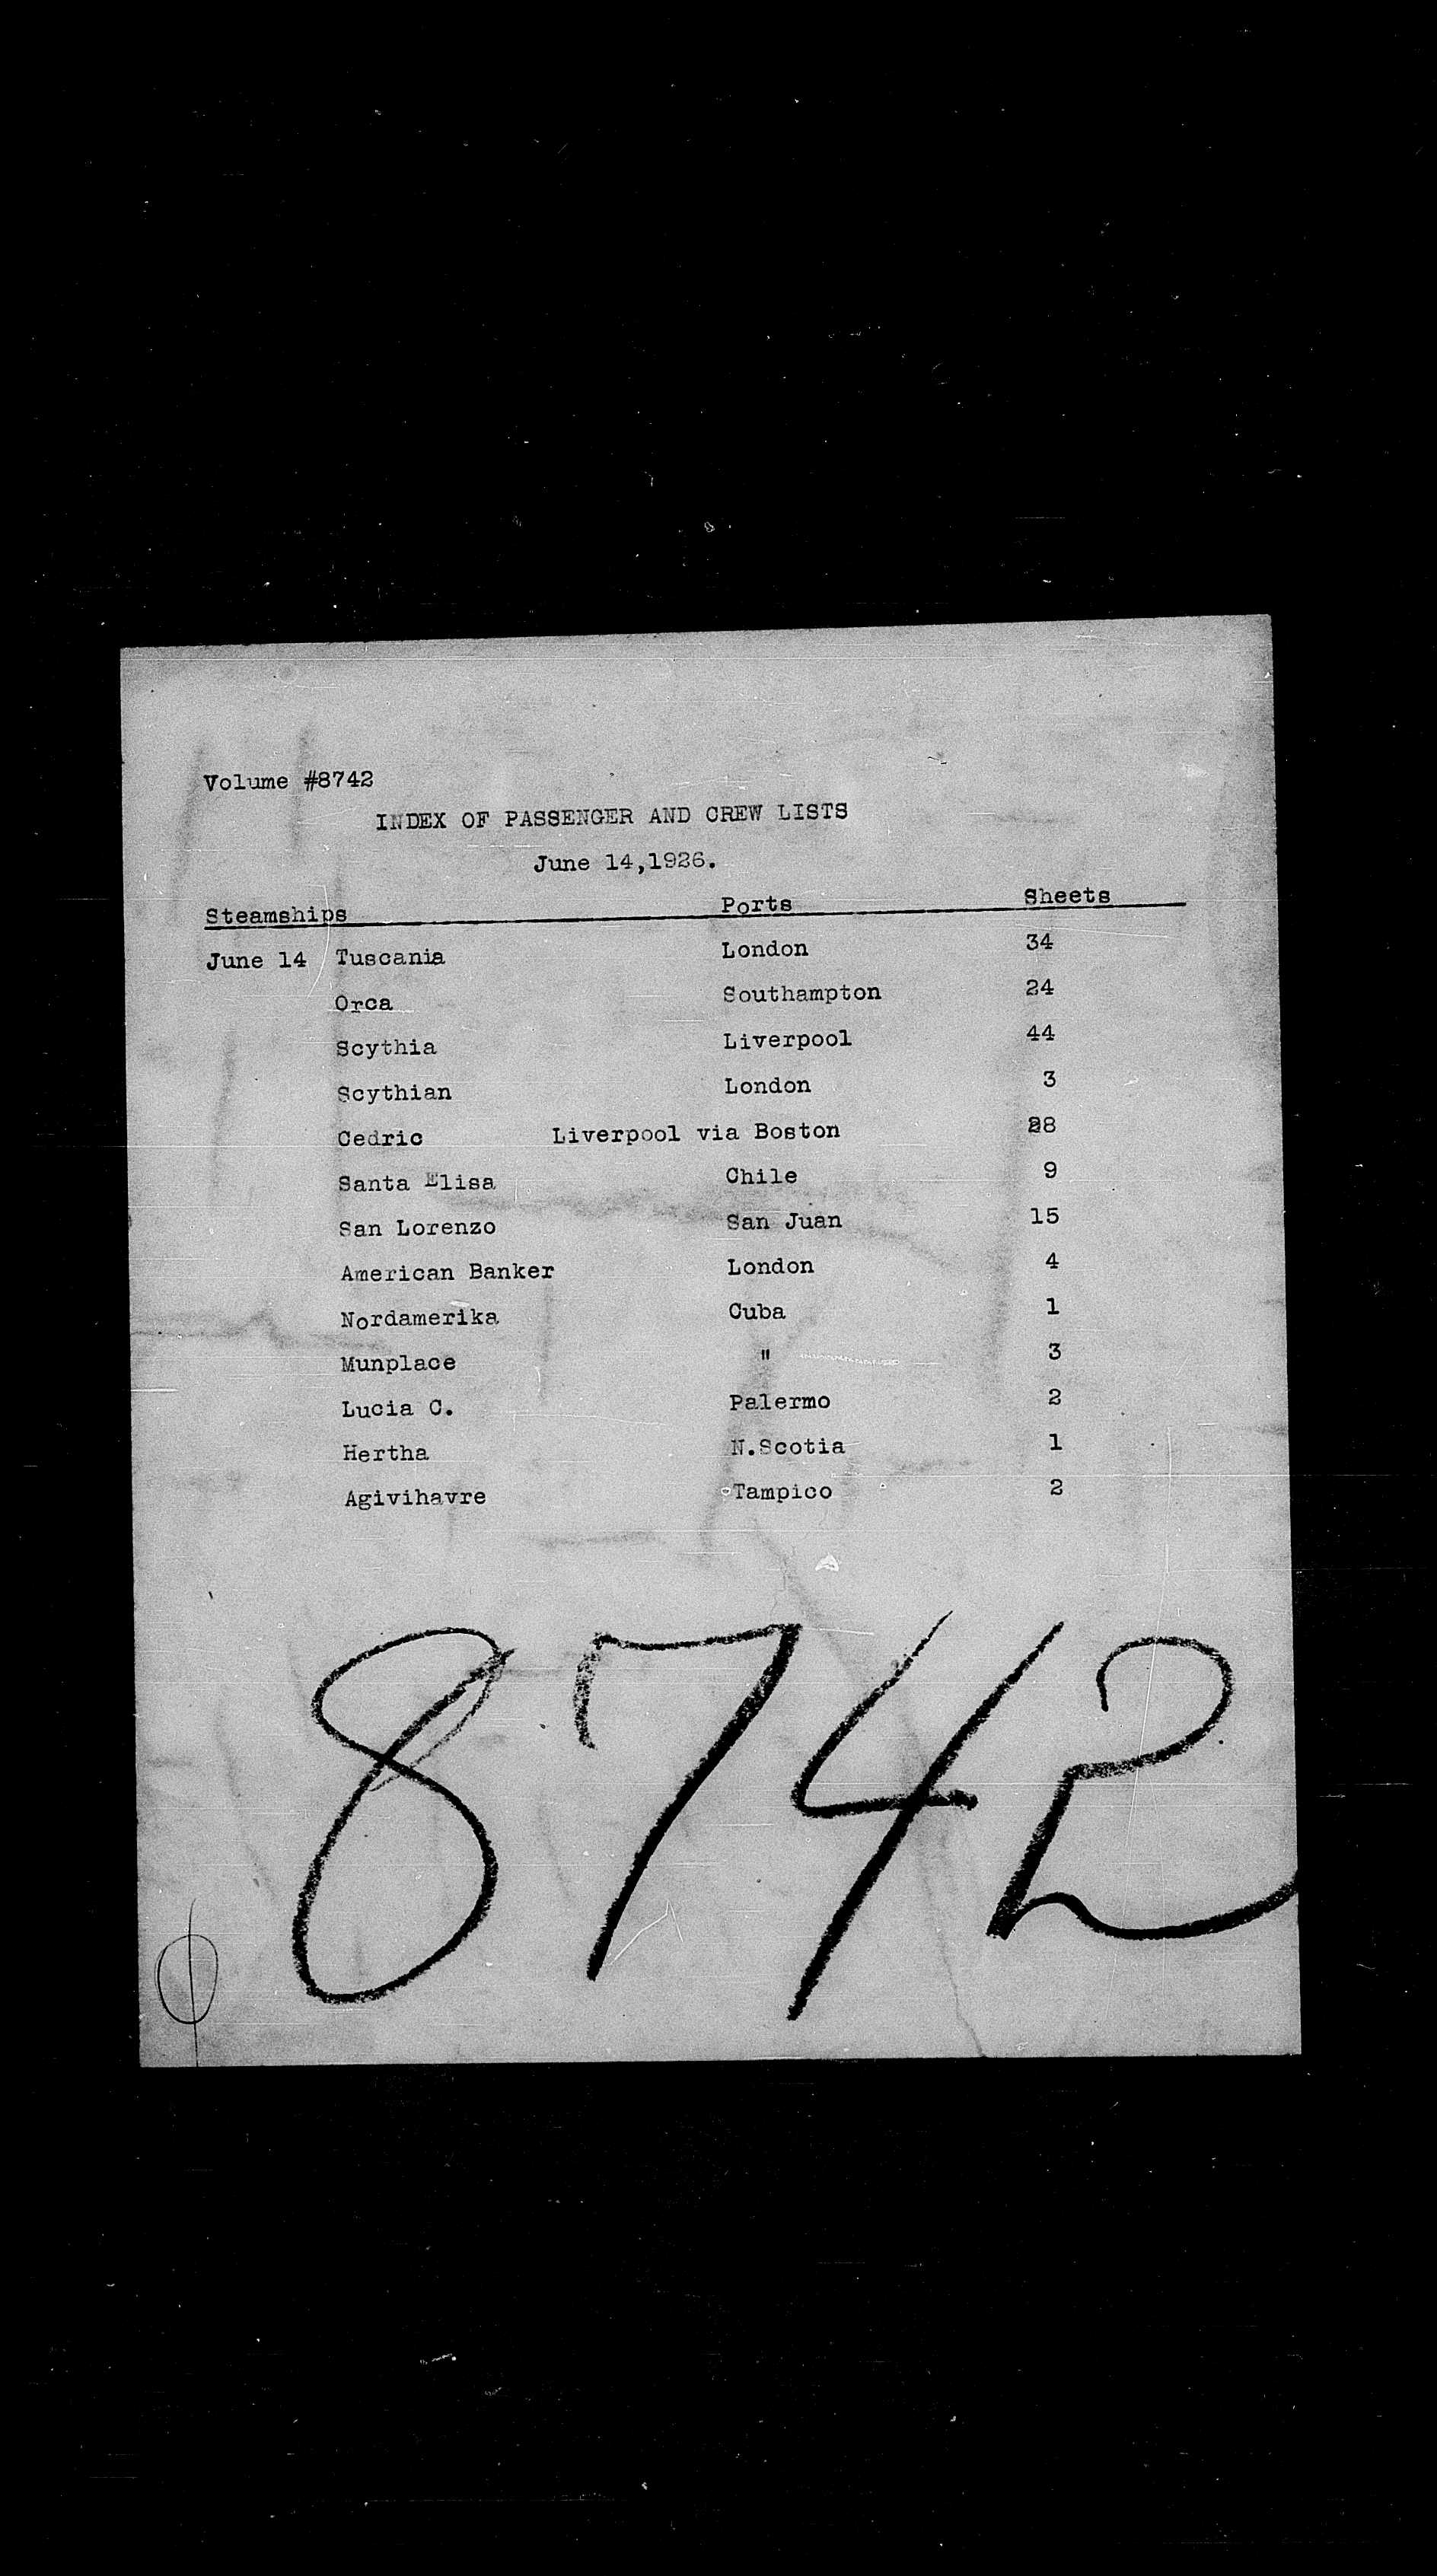 Volume #8742
INDEX OF PASSENGER AND CREW LISTS
June 14,1926.
Steamships Ports Sheets
June 14 Tuscania London 34
Orca Southampton 24
Scythia Liverpool 44
Scythian London 3
Cedric Liverpool via Boston 28
Santa Elisa Chile 9
San Lorenzo San Juan 15
American Banker London 4
Nordamerika Cuba 1
Munplace " 3
Lucia C. Palermo 2
Hertha N.Scotia 1
Agivihavre Tampico 2
8742